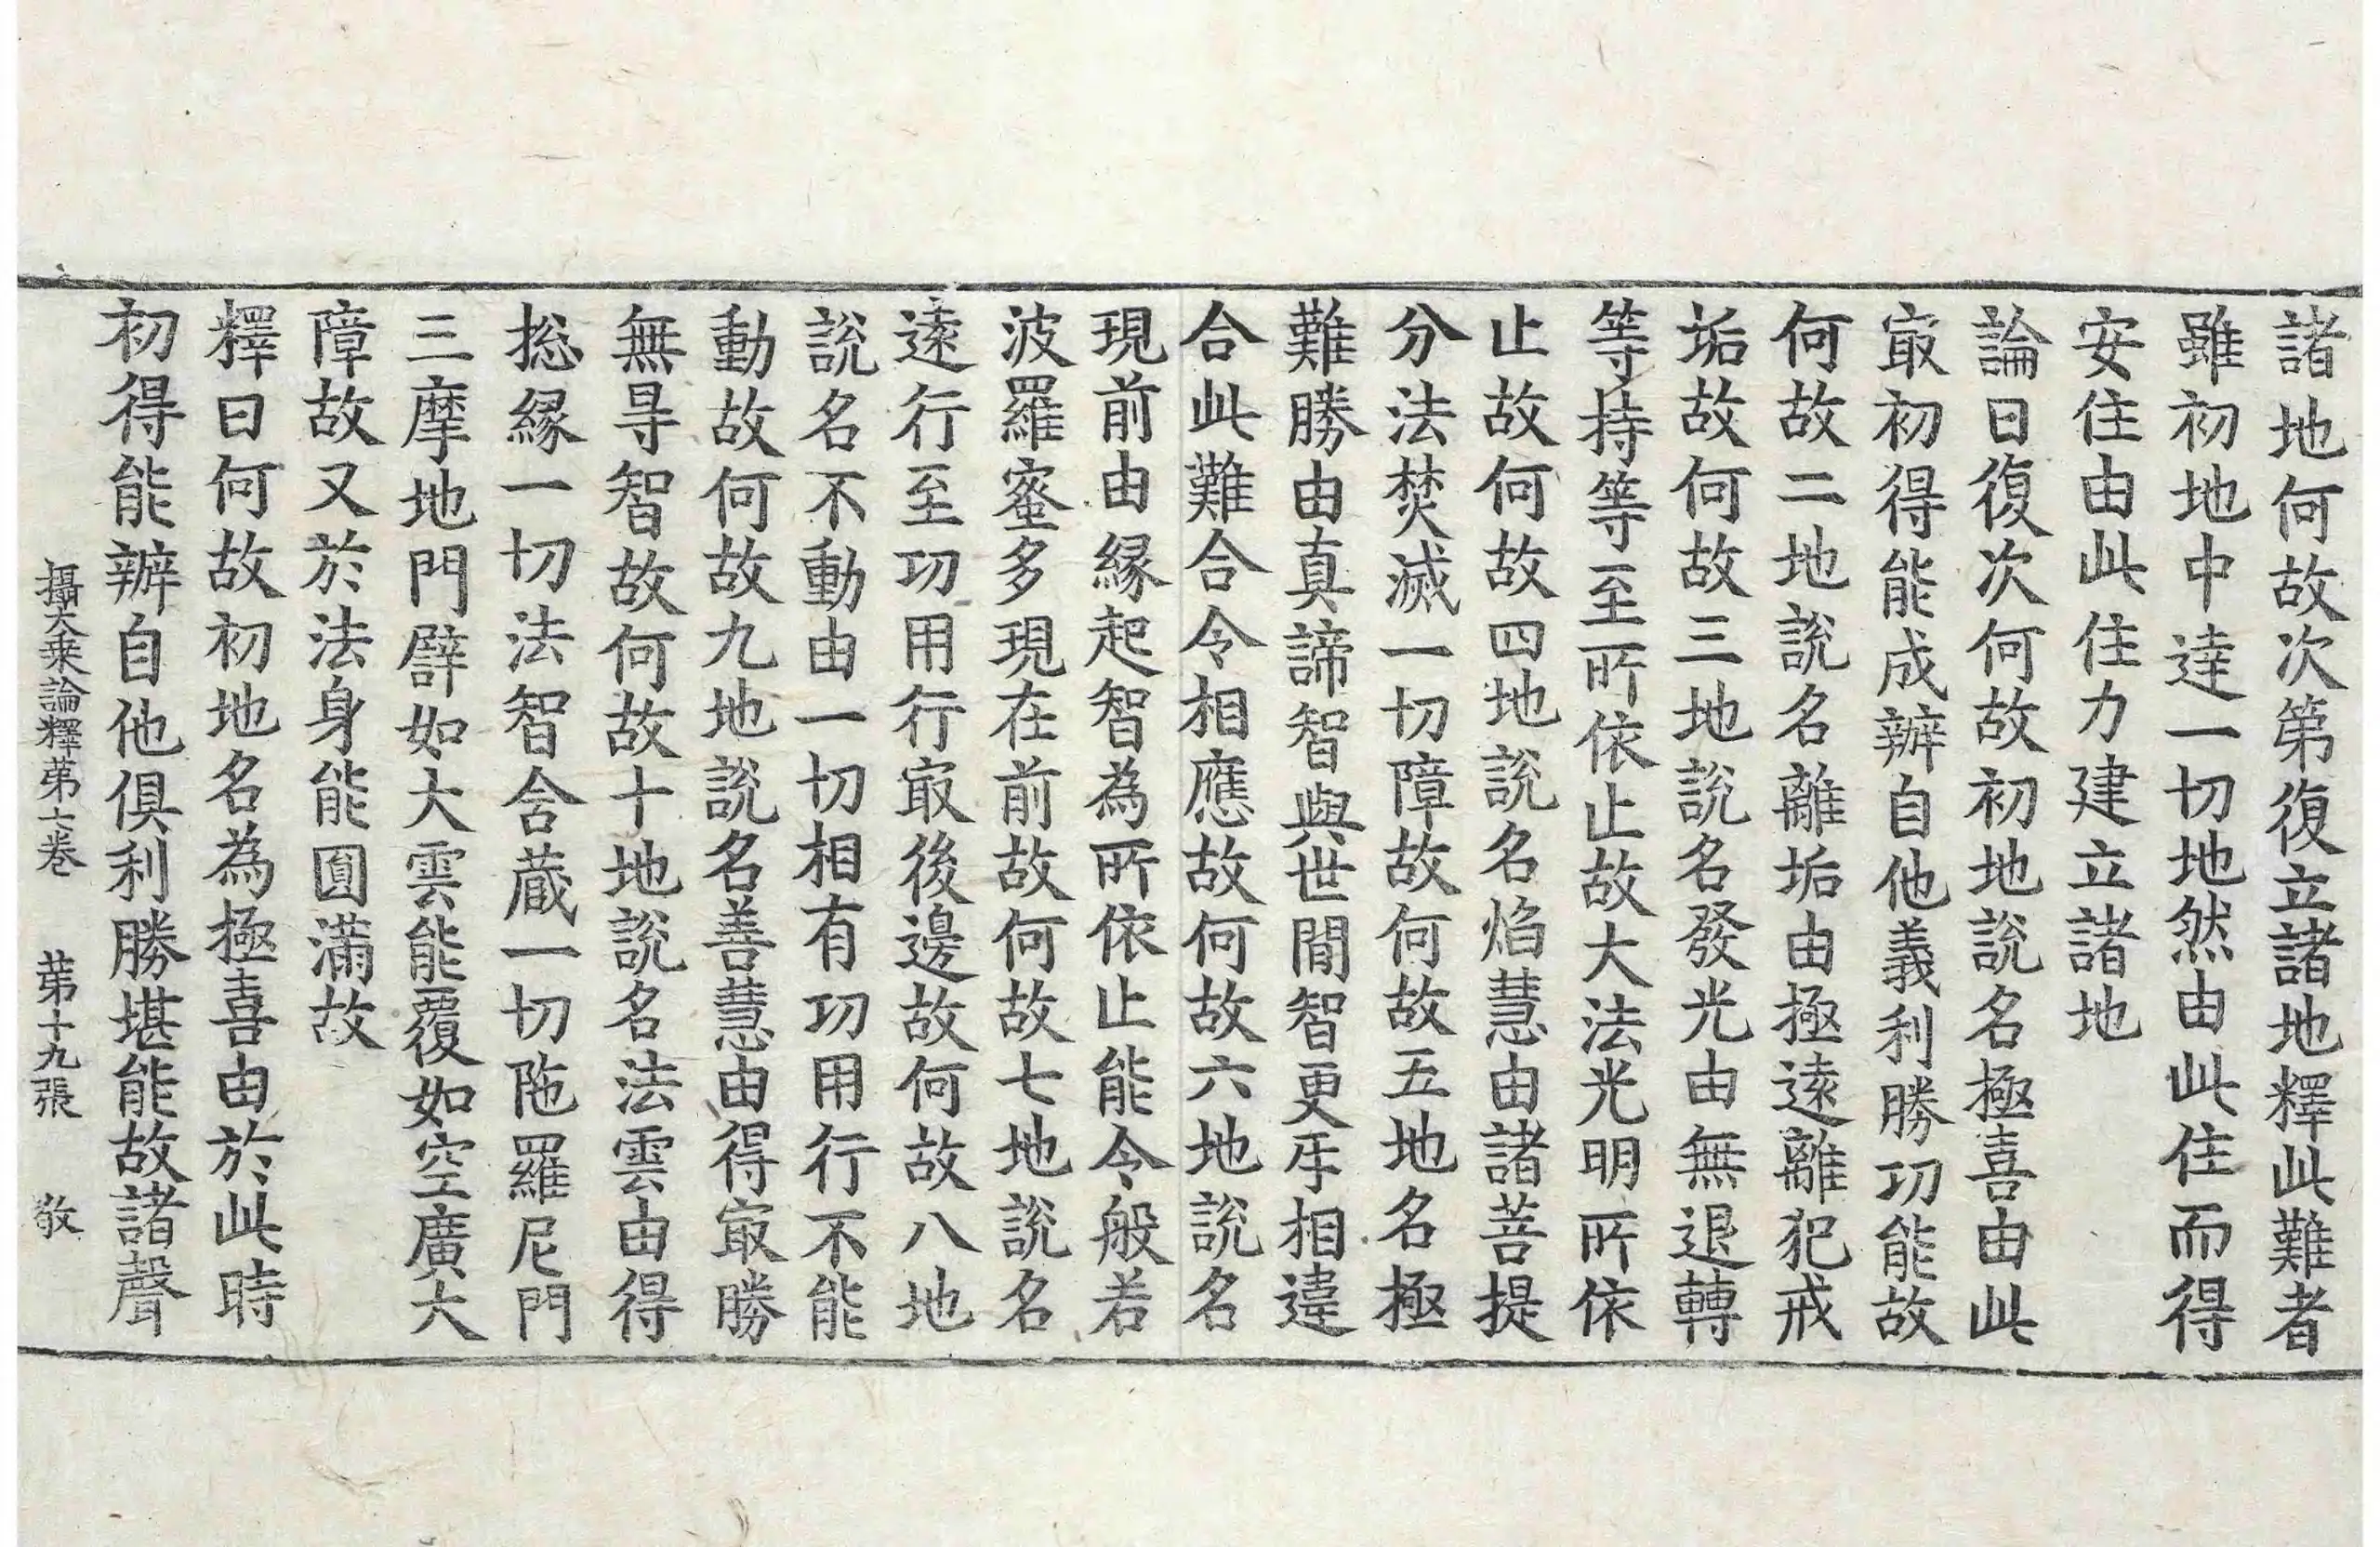 諸地何故次第復立諸地釋此難者
雖初地中達一切地然由此住而得
安住由此住力建立諸地
論曰復次何故初地説名極喜由此
㝡初得能成辦自他義利勝功能故
何故二地説名離垢由極遠離犯戒
垢故何故三地説名發光由無退轉
等持等至所依止故大法光明所依
止故何故四地説名焰慧由諸菩提
分法焚滅一切障故何故五地名極
難勝由真諦智與世間智更㸦相違
合此難合令相應故何故六地説名
現前由縁起智為所依止能令般若
波羅蜜多現在前故何故七地説名
遠行至功用行㝡後邊故何故八地
説名不動由一切相有功用行不能
動故何故九地説名善慧由得㝡勝
無㝵智故何故十地説名法雲由得
捴縁一切法智含蔵一切陁羅尼門
三摩地門譬如大雲能覆如空廣大
障故又於法身能圓滿故
釋曰何故初地名為極喜由於此時
初得能辦自他俱利勝堪能故諸聲
攝大乗論釋第七卷 第十九張 敬